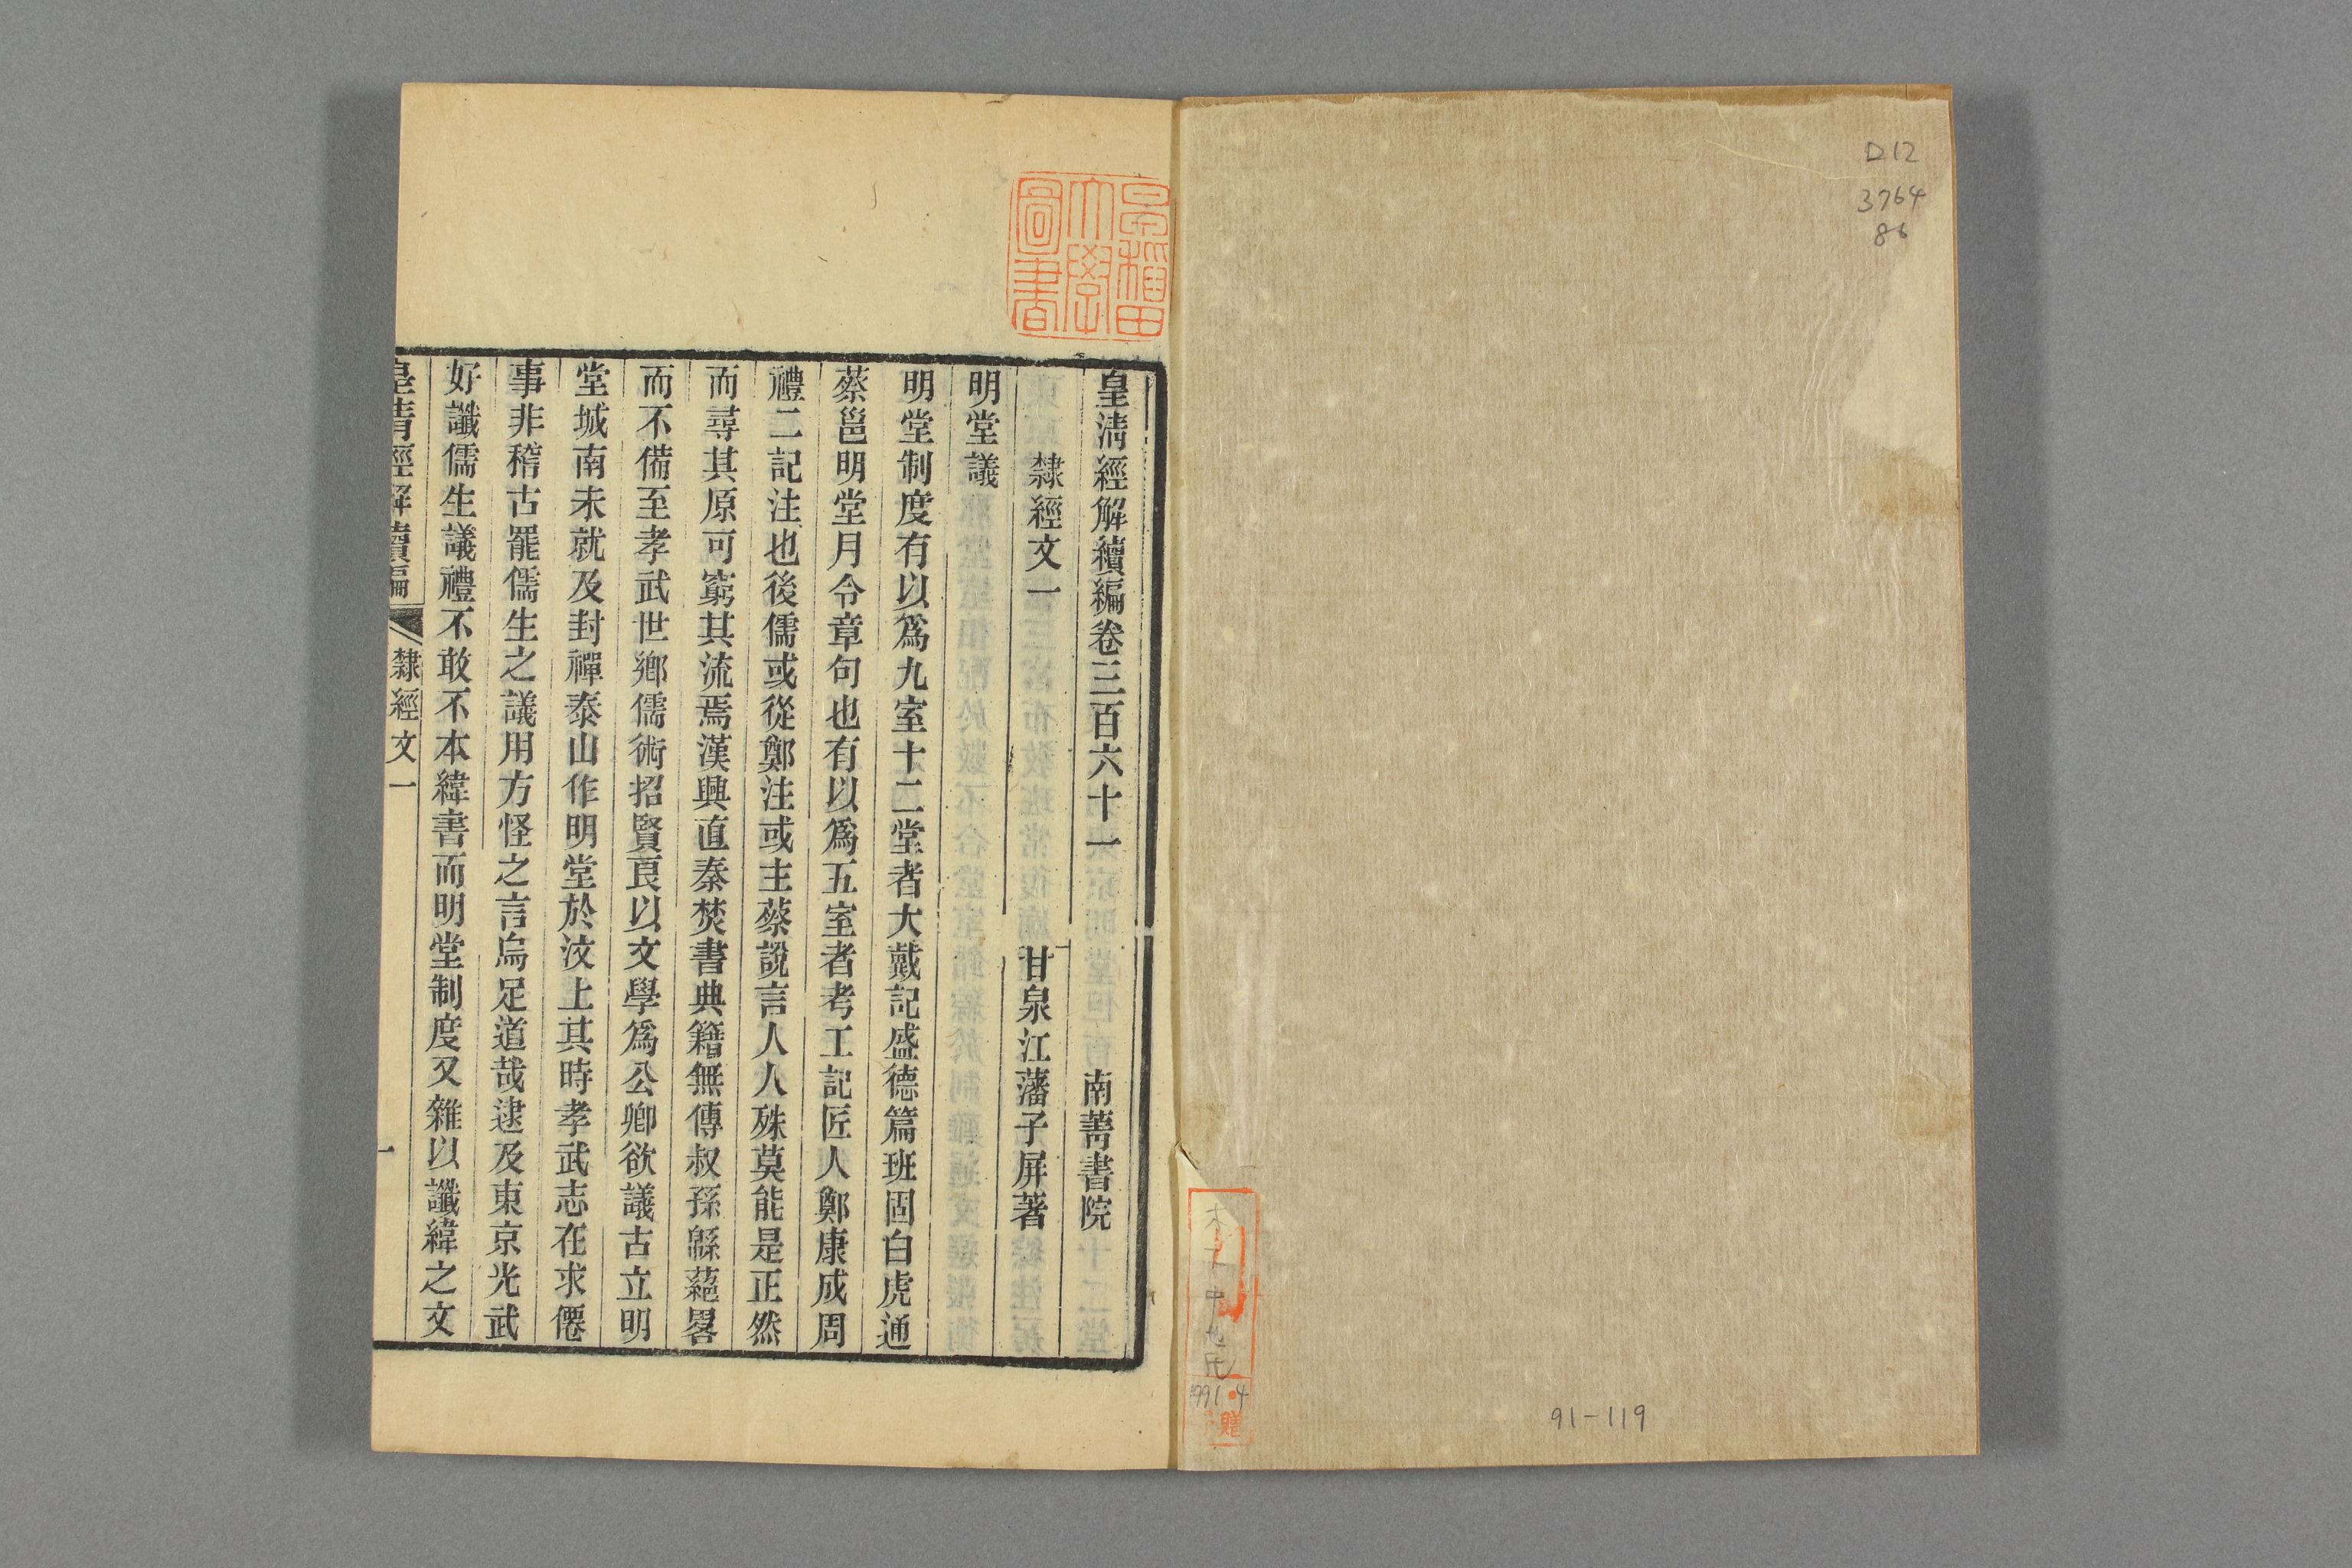 D12
3764
86
91-119
1991.4
贈
早稲田
大學
圖書
皇清經解續編卷三百六十一 南菁書院
隸經文一 甘泉江藩子屏著
明堂議
明堂制度有以爲九室十二堂者大戴記盛德篇班固白虎通
蔡邕明堂月令章句也有以爲五室者考工記匠人鄭康成周
禮二記注也後儒或從鄭注或主蔡說言人人殊莫能是正然
而尋其原可窮其流焉漢興直秦焚書典籍無傳叔孫緜蕝畧
而不備至孝武世鄉儒術招賢良以文學爲公卿欲議古立明
堂城南未就及封禪泰山作明堂於汶上其時孝武志在求僊
事非稽古罷儒生之議用方怪之言烏足道哉逮及東京光武
好讖儒生議禮不敢不本緯書而明堂制度又雜以讖緯之文
皇清經解續編 隸經文一 一